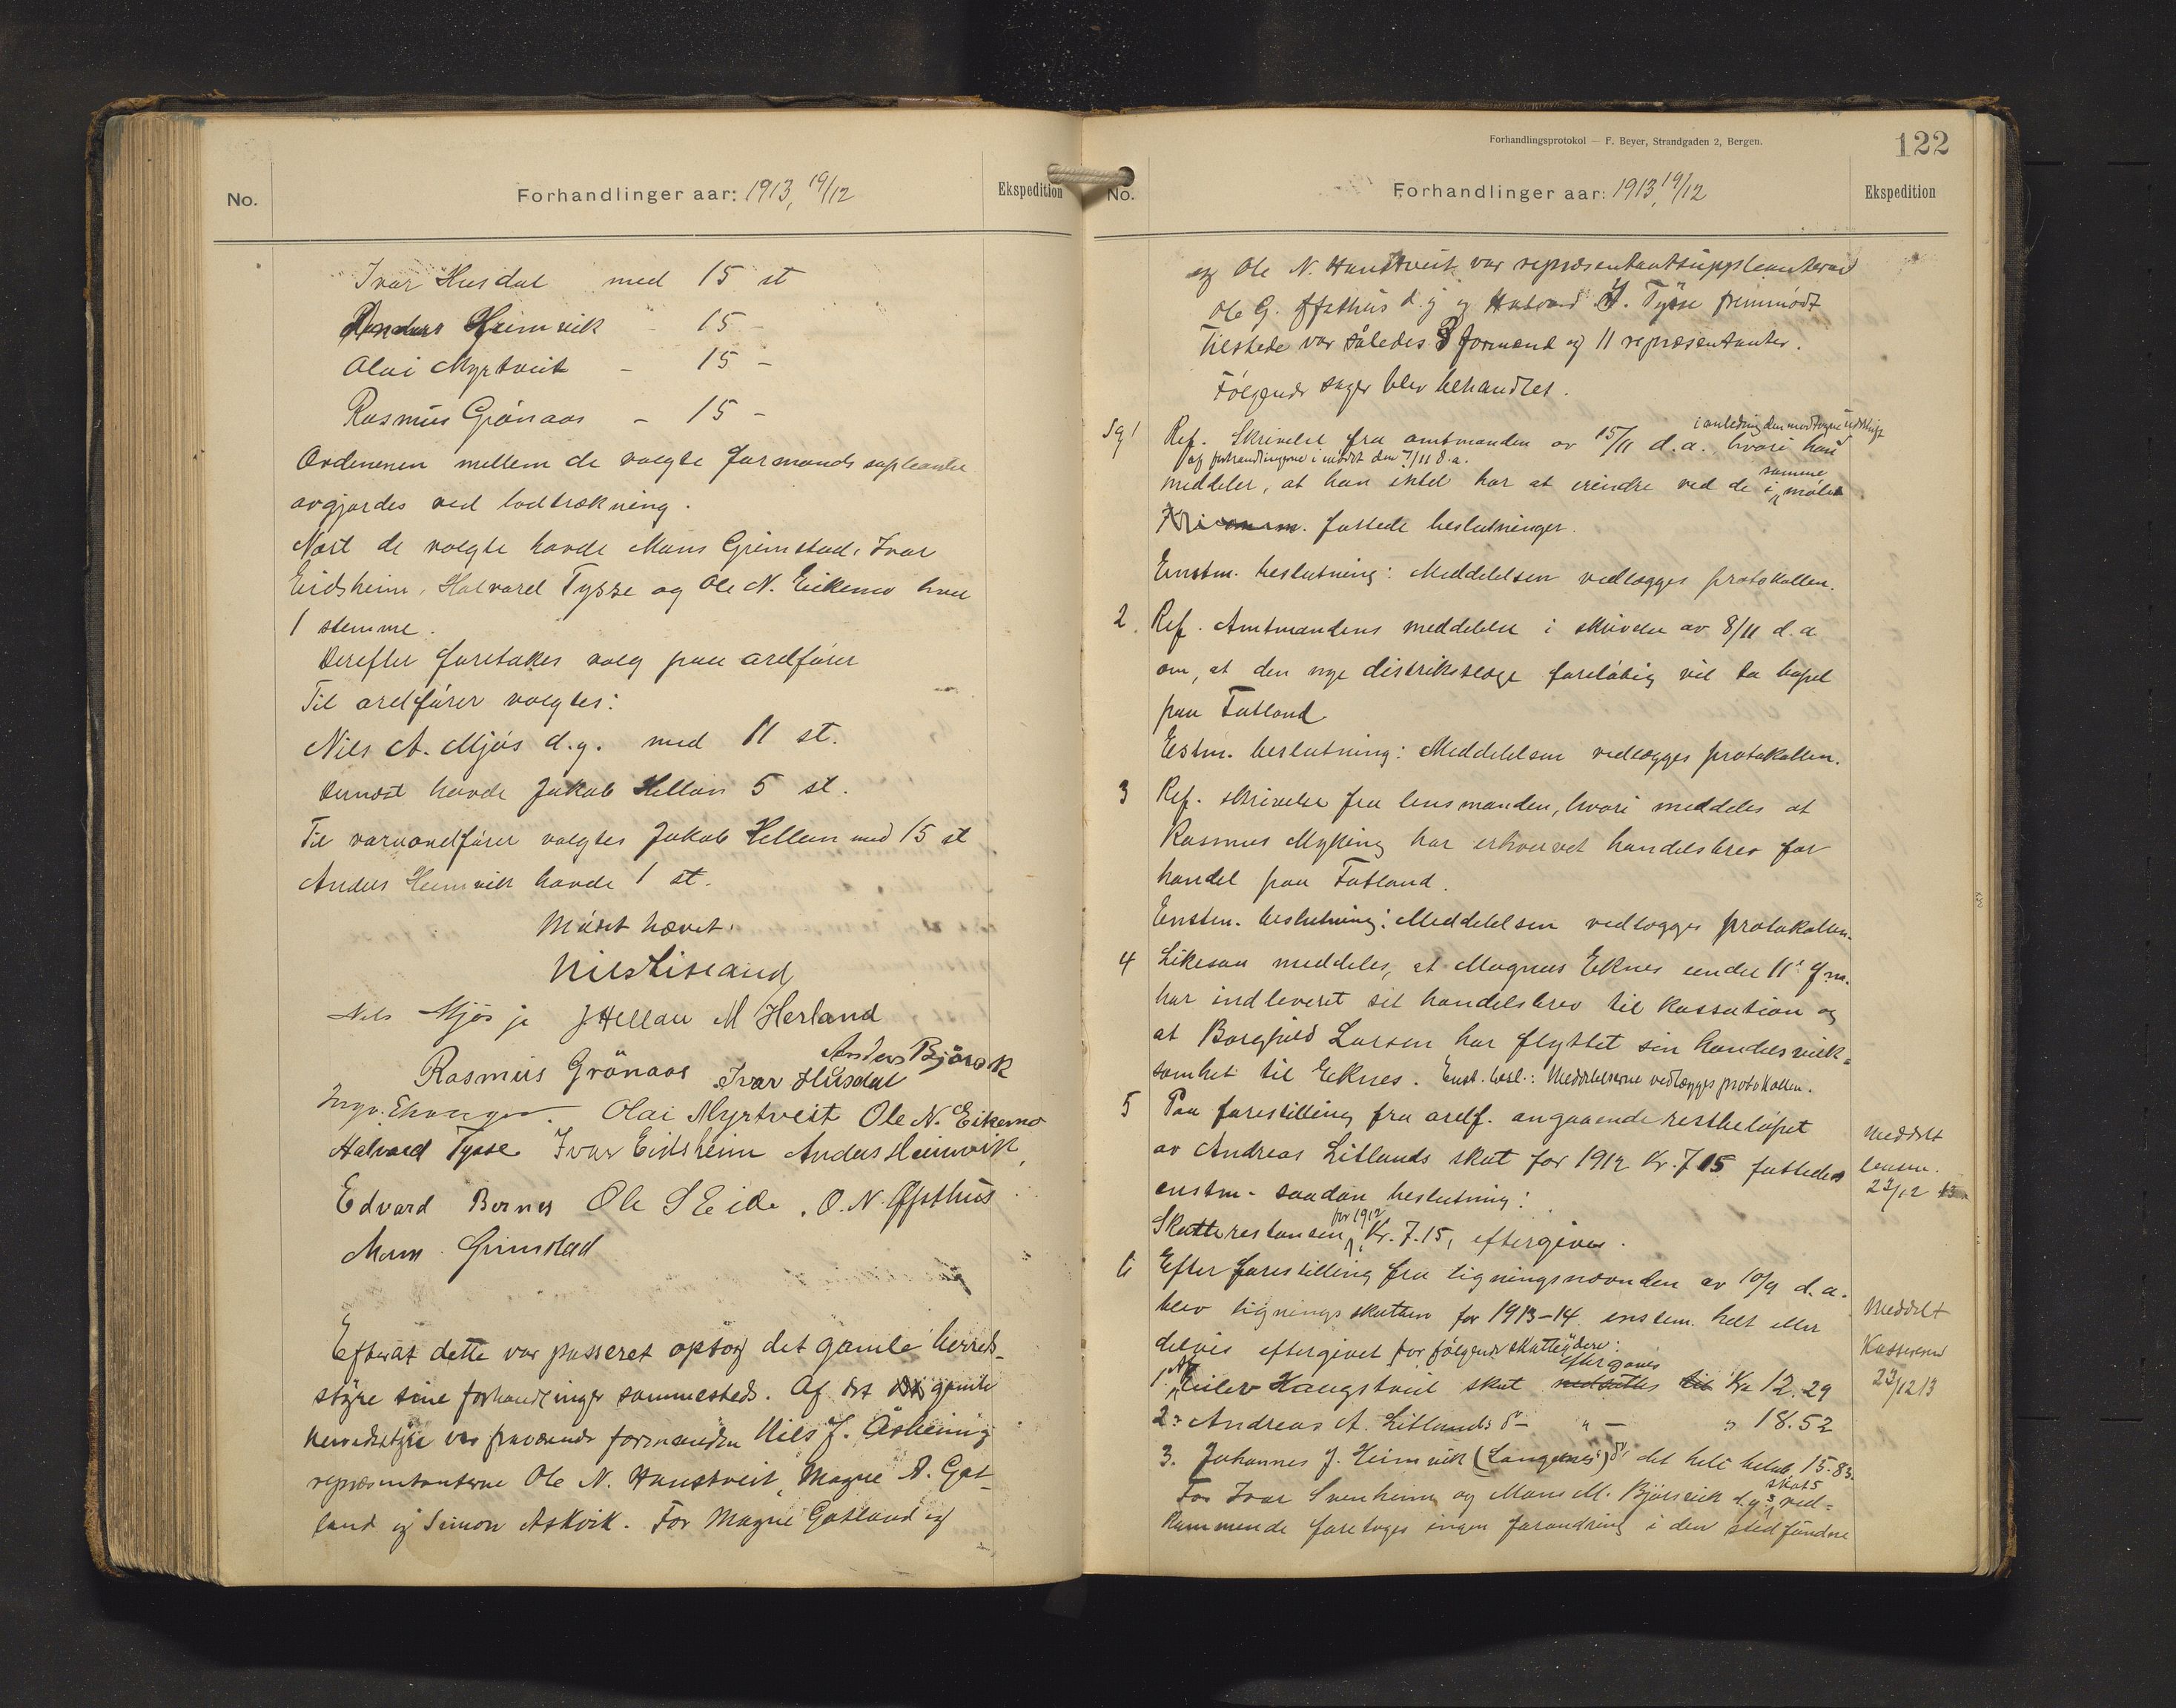 No.
Forhandlinger aar: 1913, 19/12
Ekspedition
Ivar Husdal med 15 st
Anders Heimvik - 15 -
Olai Myrtveit - 15 -
Rasmus Grönaas - 15 -
Ordenenen mellem de valgte formands supleanter
avgjordes ved lodtrækning.
Næst de valgte havde Mons Grimstad, Ivar
Eidsheim, Halvard Tysse og Ole N. Eikemo hver
1 stemme.
Derefter foretakes valg paa ordfører
Til ordfører valgtes:
Nils A. Mjøs d.y. med 11 st.
Dernæst havde Jakob Hellan 5 st.
Til varaordfører valgtes Jakob Hellan med 15 st
Anders Heimvik havde 1 st.
Mødet hævet.
Nils Liseand
Nils Mjøs jr J Hellan M Herland
Anders Björsvik
Rasmus Grönaas Ivar Husdal
Ingv. Olai Myrtveit Ole N. Eikemo
Halvard Tysse Ivar Eidsheim Anders Heimvik,
Edvard Bernes Ole S Eide. O. N. Offsthus
Mons Grimstad
Efterat dette var passeret optog det gamle herreds-
styre sine forhandlinger sammesteds. Af det gamle
herredsstyre var fraværende formanden Nils J. Åsheim og
repræsentanterne Ole N. Hanstveit, Magne A. Gat-
land og Simon Askvik. For Magne Gatland og
Forhandlingsprotokol — F. Beyer, Strandgaden 2, Bergen.
122
No.
Forhandlinger aar: 1913, 19/12
Ekspedition
og Ole N. Hanstveit var repræsentantsuppleanterne
Ole G. Offsthus d.y og Halvard J. Tysse fremmödt
Tilstede var således 3 formænd og 11 repræsentanter.
Følgende sager blev behandlet.
Sg 1
i anledning den modtagne udskrift
Ref. Skrivelse fra amtmanden av 15/11 d.a. hvori han
af forhandlingerne i mødet den 7/11 d.a.
meddeler, at han intet har at erindre ved de i samme møte
fattede beslutninger.
Enstm. beslutning: Meddelelsen vedlægges protokollen.
2. Ref. Amtmandens meddelelse i skrivelse av 8/11 d.a
om, at den nye distriktslæge foreløbig vil ta bopel
paa Fatland
Enstm. beslutning: Meddelelsen vedlægges protokollen.
3 Ref. skrivelse fra lensmanden, hvori meddeles at
Rasmus Myking har erhvervet handelsbrev for
handel paa Fatland.
Enstm. beslutning: Meddelelsen vedlægges protokollen.
4 Likesaa meddeles, at Magnus Eknes under 11' f.m.
har indleveret sit handelsbrev til kassation og
at Borghild Larsen har flyttet sin handelsvirk=
somhet til Eknes. Enst. besl.: Meddelelserne vedlægges protokollen.
5 Paa forestilling fra ordf. angaaende restbeløpet
av Andreas Litlands skat for 1912 Kr. 7.15 fattedes
enstm. saadan beslutning:
Skatterestansen for 1912, Kr. 7.15, eftergives.
Meddelt
lensm.
23/12
6 Efter forestilling fra ligningsnævnden av 10/9 d.a.
blev ligningsskatten for 1913-14 enstem. helt eller
delvis eftergivet for følgende skatteydere:
Meddelt
Kassereren
23/12 13
1. Haugstveit skat nedsættes til eftergives Kr 12.29
2. Andreas A. Litlands do - " - " 18.52
3. Johannes J. Heimvik (Langenes) do det hele beløb 15.83.
For Ivar Svenheim og Mons M. Björsvik d.y.s skats ved-
kommende foretages ingen forandring i den stedfundne